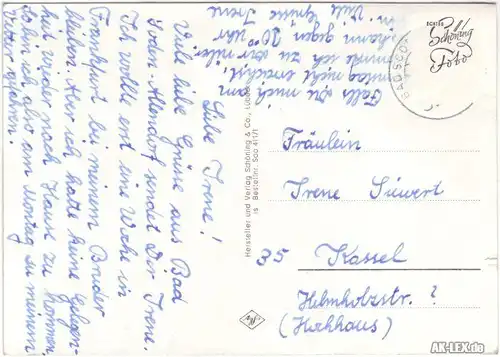 Liebe Irene!
Viele liebe Grüsse aus Bad
Sooden-Allendorf sendet Dir Irene.
Ich wollte erst eine Woche in
Frankfurt bei meinem Bruder
bleiben. Aber ich hatte keine Gelegen-
heit wieder nach Hause zu kommen.
So bin ich also am Montag zu meinem
Vater gefahren.
Falls Du mich am
Montag nicht erreichst,
komme ich zu Dir rüber.
dann gegen 20⁰⁰ Uhr
Viele Grüsse Irene
Hersteller und Verlag Schöning & Co., Lübeck
is Bestellnr. Soo 411/1
ECHTES
Schöning
Foto
BAD SOO
Fräulein
Irene Siewert
35 Kassel
Helmholzstr. ?
(Hochhaus)
AK-LEX.de